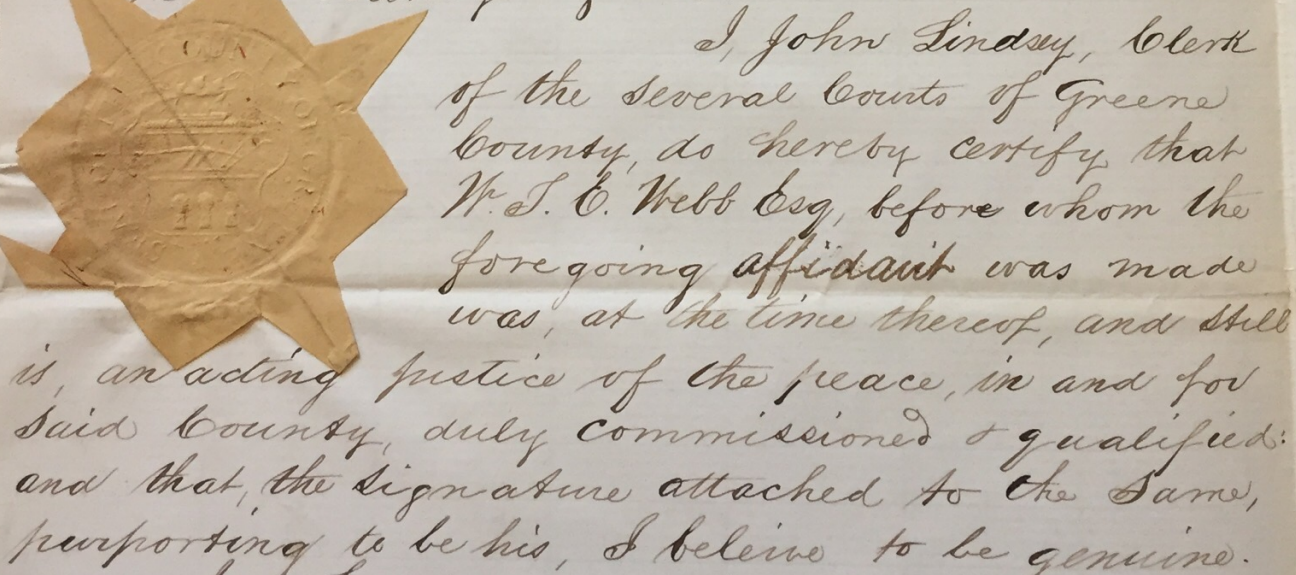 I, John Lindsey, Clerk
of the several Courts of Greene
County, do hereby certify that
W. T. E. Webb Esq, before whom the
foregoing affidavit was made
was, at the time thereof, and still
is, an acting justice of the peace, in and for
said County, duly commissioned & qualified:
and that, the signature attached to the same,
purporting to be his, I beleive to be genuine.